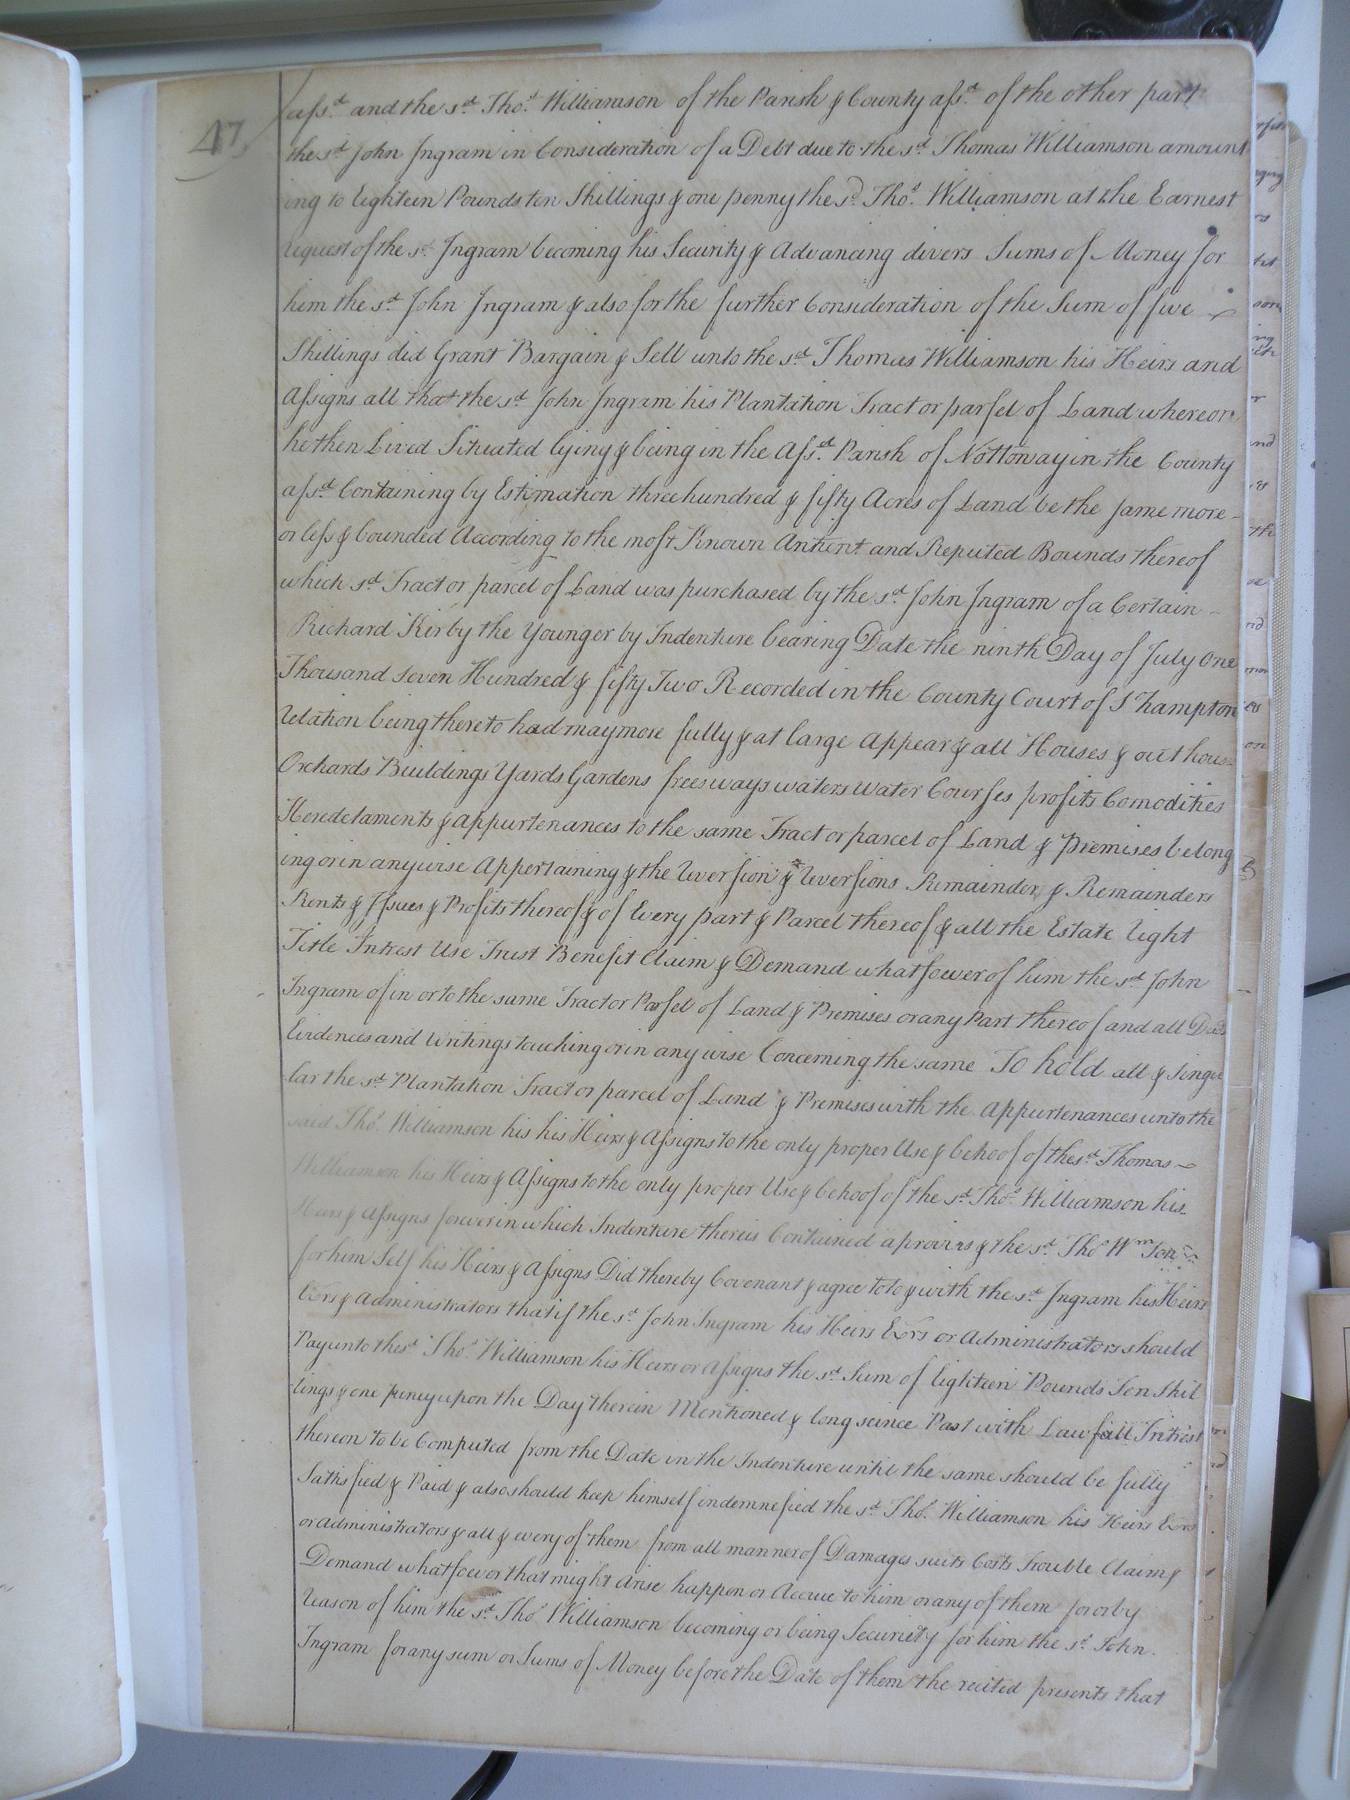 47
afsd. and the sd. Thos. Williamson of the Parish & County afsd. of the other part
the sd. John Ingram in Consideration of a Debt due to the sd. Thomas Williamson amount
ing to Eighteen Pounds ten Shillings & one penny the sd. Thos. Williamson at the Earnest
request of the sd. Ingram becoming his Security & Advancing divers Sums of Money for
him the sd. John Ingram & also for the further Consideration of the Sum of five
Shillings did Grant Bargain & Sell unto the sd. Thomas Williamson his Heirs and
Assigns all that the sd. John Ingram his Plantation Tract or parsel of Land whereon
he then Lived Situated lying & being in the Afsd. Parish of Nottoway in the County
afsd. Containing by Estimation three hundred & fifty Acres of Land be the same more
or less & bounded According to the most Known Antient and Reputed Bounds thereof
which sd. Tract or parcel of Land was purchased by the sd. John Ingram of a Certain
Richard Kirby the Younger by Indenture bearing Date the ninth Day of July One
Thousand Seven Hundred & fifty Two Recorded in the County Court of S Hampton
relation being thereto had may more fully & at large Appear & all Houses & out hous
Orchards Buildings Yards Gardens frees ways waters water Courses profits Comodities
Heredetaments & appurtenances to the same Tract or parcel of Land & Premises belong
ing or in anywise Appertaining & the reversion & reversions Remainder & Remainders
Rents & Issues & Profits thereof & of Every part & Parcel thereof & all the Estate right
Title Intrest Use Trust Benefit Claim & Demand whatsoever of him the sd. John
Ingram of in or to the same Tract or Parsel of Land & Premises or any Part thereof and all
Evidences and writings touching or in any wise Concerning the same To hold all & Singu
lar the sd. Plantation Tract or parcel of Land & Premises with the Appurtenances unto the
said Thos. Williamson his his Heirs & Assigns to the only proper Use & behoof of the sd. Thomas
Williamson his Heirs & Assigns to the only proper Use & behoof of the sd. Thos. Williamson his
Heirs & Assigns forever in which Indenture there is Contained a & the sd. Thos. Wm Son
for him Self his Heirs & Assigns Did thereby Covenant & agree to to & with the sd. Ingram his Heirs
Exrs & Administrators that if the sd. John Ingram his Heirs Exrs or Administrators should
Pay unto the sd. Thos. Williamson his Heirs or Assigns the sd. Sum of Eighteen Pounds Ten Shil
lings & one Penny upon the Day therein Mentioned & long seince Past with Lawfull Intrest
thereon to be Computed from the Date in the Indenture until the same should be fully
Satisfied & Paid & also should keep himself indemnefied the sd. Thos. Williamson his Heirs Exrs
or administrators & all & every of them from all manner of Damages suits Costs Trouble Claim &
Demand whatsoever that might Arise happen or Accrue to him or any of them for or by
reason of him the sd. Thos. Williamson becoming or being Securiety for him the sd. John
Ingram for any sum or Sums of Money before the Date of them the recited presents that